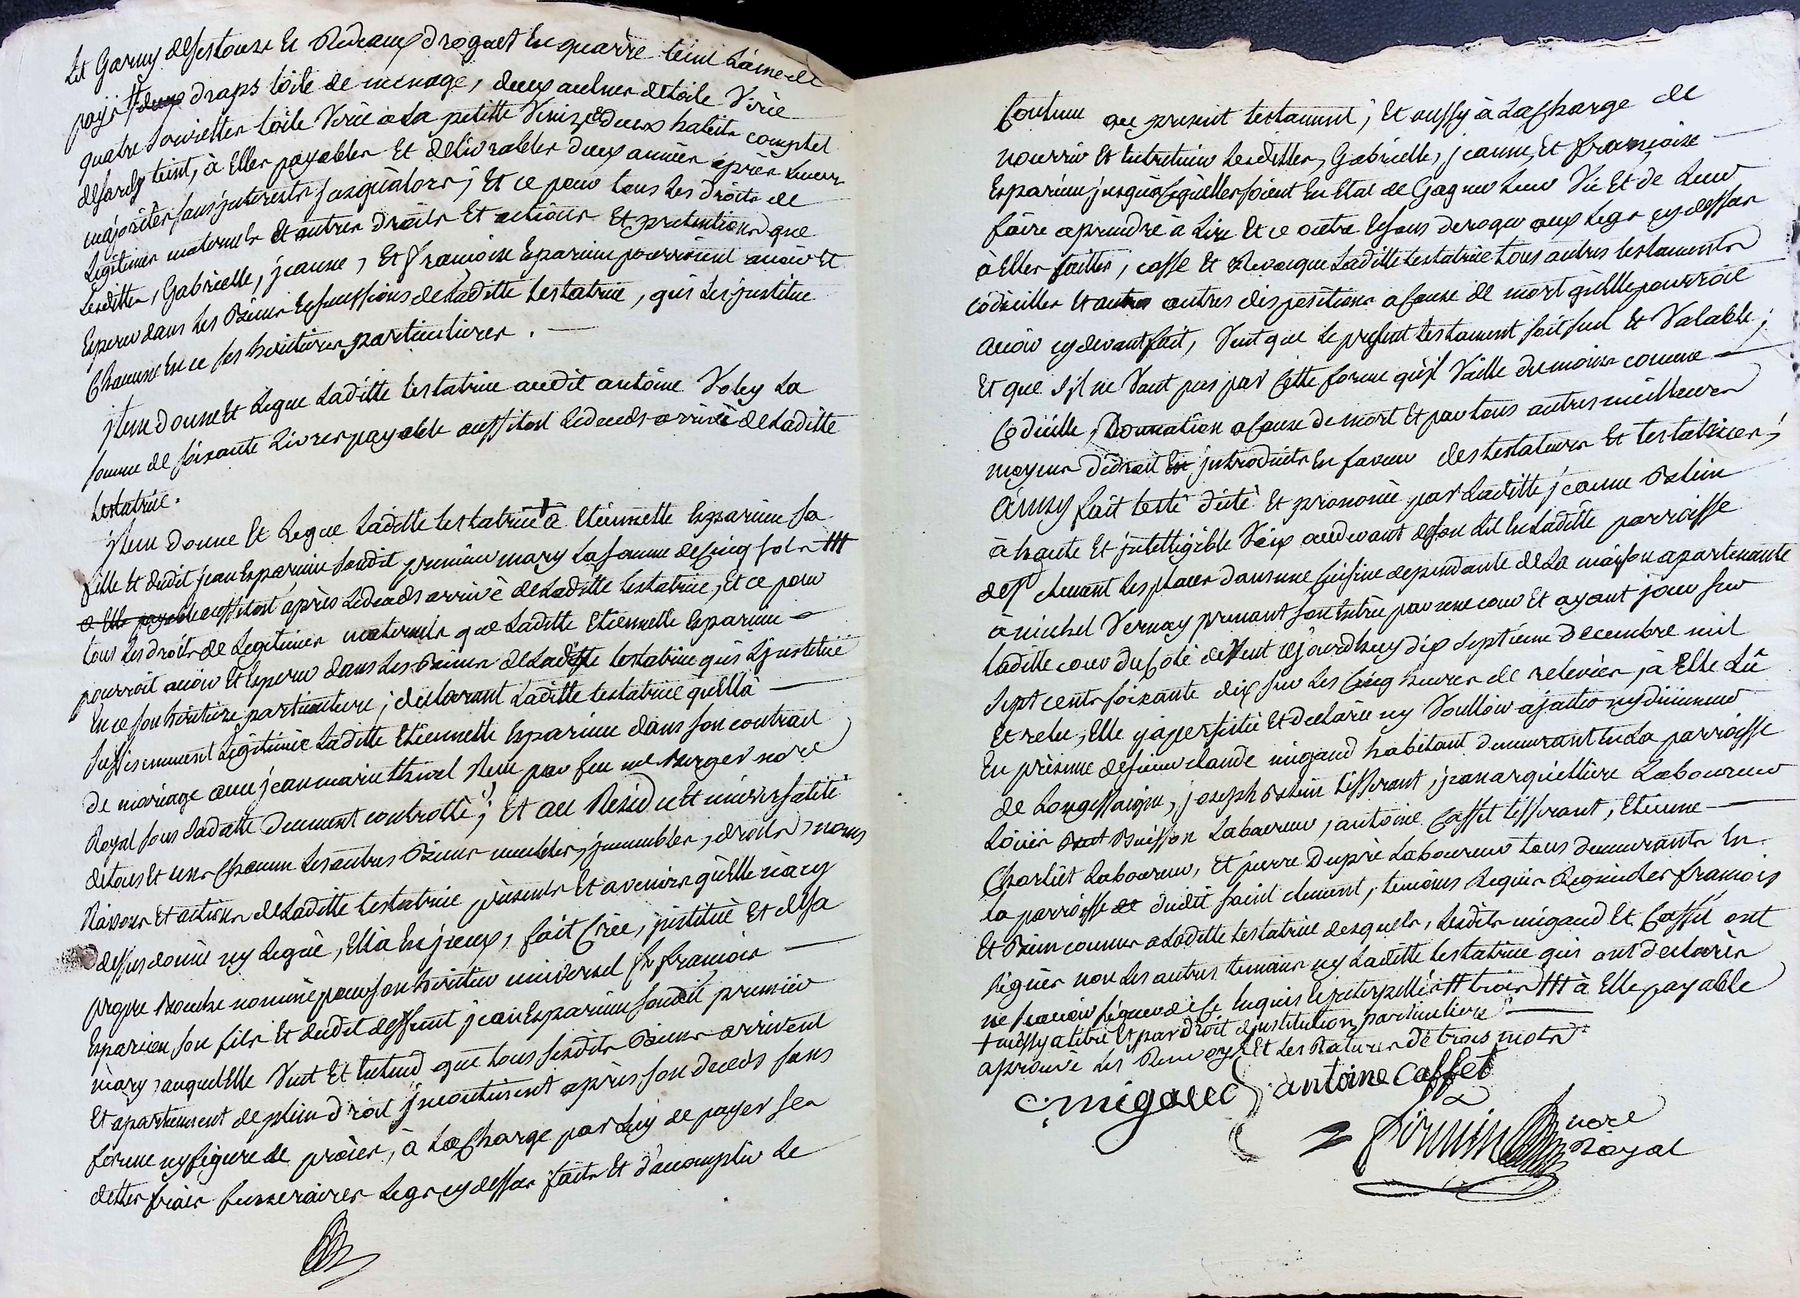 Lit Garny de sestours Et Rideaux droguet En quarré teint Laine de
pays # deux draps toile de menage, deux aulnes de toile Virée
quatre Serviettes toile Virée a La petitte Venize & deux habits complet
de sardy teint, à Elles payables Et délivrables deux années après Leurs
majorités sans jnterests jusqu'alors; Et ce pour tous Les droits de
Legitimes maternels Et autres droits Et actions Et prétentions que
Lesdittes, Gabrielle, jeanne, Et françoise Esparsieu pourroient avoir Et
Esperer dans Les Biens Et successions de Laditte testatrice, qui Les jnstitue
Chacune En ce ses heritieres particulieres. —
jtem donne Et Legue Laditte testatrice audit antoine Voley La
somme de soixante Livres payable aussitost Le deceds arrivé de Laditte
testatrice.
jtem donne Et Legue Laditte testatrice + à Etiennette Esparsieu sa
fille Et dudit jean Esparsieu sondit premier mary La somme de Cinq sols ##
a Elle payable aussitost après Le deceds arrivé de Laditte testatrice, Et ce pour
tous Les droits de Legitimes maternels que Laditte Etiennette Esparsieu
pourroit avoir Et Esperer dans Les Biens de Laditte testatrice qui L'jnstitue
En ce son heritiere particuliere; declarant Laditte testatrice qu'Ella —
suffisemment Légitimée Laditte Etiennette Esparsieu dans son contract
de mariage avec jean marie thivel Reçu par feu me Burger nore
Royal sous sa datte deuement controllé; Et au Residu Et universalité
de tous Et uns Chacuns Les autres Biens meubles, jmmeubles, droits, noms
Raisons Et actions de Laditte testatrice présents Et avenirs qu'Elle n'a cy
dessus donné ny Legué, Ella En jceux, fait Crée, jnstitué Et de sa
propre Bouche nommé pour son heritier universel Sr francois —
Esparsieu son fils Et dudit deffunt jean Esparsieu sondit premier
mary, auquel Elle Veut Et Entend que tous sesdits Biens arrivent
Et apartiennent de plein droit jncontinent après son deceds sans
forme ny figure de procès, à La Charge par Luy de payer ses
dettes frais funeraires Legs cy dessus faits Et d'accomplir Le
Contenu au present testament; Et aussy à La Charge de
nourrir Et Entretenir Lesdittes, Gabrielle, jeanne, Et françoise —
Esparsieu jusqu'a ce qu'elles soient En Etat de Gagner Leur Vie Et de Leur
faire aprendre à Lire Et ce outre Et sans deroger aux Legs cy dessus
à Elles faittes, casse Et Revoque Laditte testatrice tous autres testaments
codicilles Et autres autres dispositions a Cause de mort qu'Elle pourroit
avoir cy devant fait, Veut que Le présent testament soit seul Et Valable;
Et que s'jl ne Vaut pas par Cette forme qu'jl Vaille du moins comme —
Codicille, Donnation a Cause de mort Et par tous autres meilleurs
moyens de droit En jntroduits En faveur des testateurs Et testatrices;
ainsy fait testé dicté Et prononcé par Laditte jeanne Belin
à haute Et jntelligible Voix audevant de son Lit En Laditte parroisse
de St Clement Les places dans une Cuisine dependante de La maison apartenante
à michel Vernay prenant son Entrée par une cour Et ayant jour sur
Laditte cour du Coté de Vent cejourdhuy dix septieme decembre mil
sept cents soixante dix sur Les Cinq heures de relevées, à Elle Lû
Et relu, Elle y a persisté Et declaré ny Voulloir ajouter ny diminuer
En présence de sieur claude migaud habitant demeurant En La parroisse
de Longessaigne, joseph Belin tisserant, jean arquilliere Laboureur
Loüis Buisson Laboureur, antoine Caffet tisserant, Etienne —
Charliet Laboureur, Et pierre Dupré Laboureur tous demeurants En
La parroisse de dudit saint clement, temoins Requis Regnicoles francois
Et Bien connus a Laditte testatrice desquels, Lesdits migaud Et Caffet ont
signés non Les autres temoins ny Laditte testatrice qui ont declarés
ne sçavoir signer de ce Enquis Et jnterpellés # trois ## à Elle payable
+ aussy a titre Et par droit d'jnstitution particuliere —
aprouvé Les Renvoys Et Les Ratures de trois mots
C: migaud antoine Caffet
nore
Royal